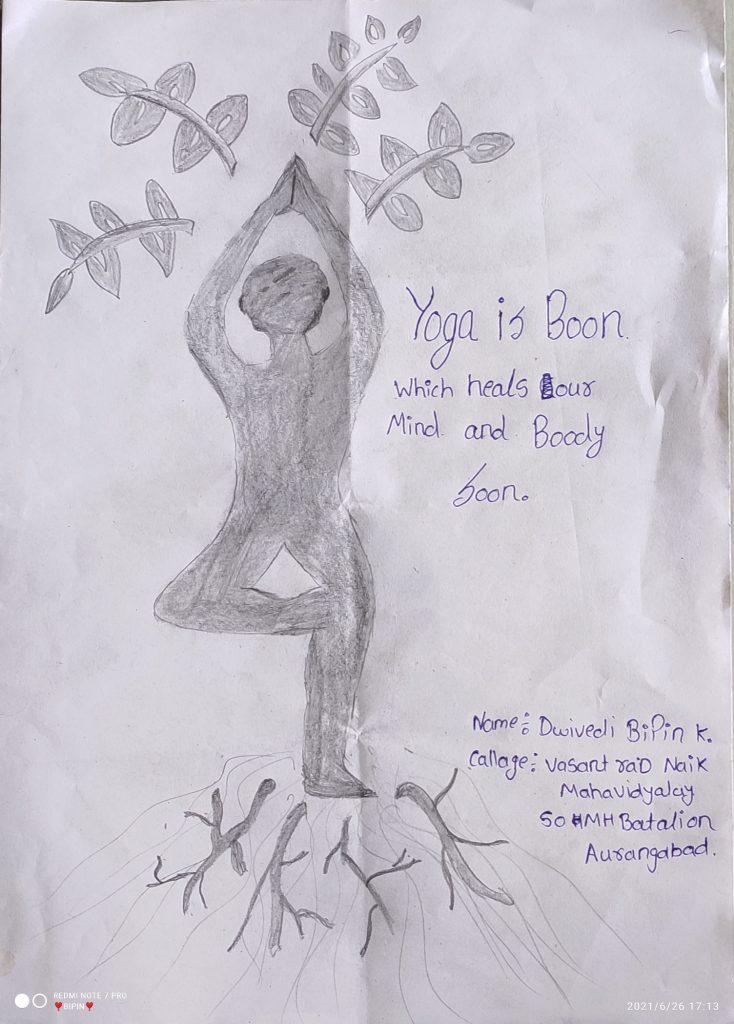 Yoga is Boon.
Which heals our
Mind and Boody
soon.
Name: Dwivedi BiPin K.
Callage: Vasant raO Naik
Mahavidyalay
50 MH Batalion
Aurangabad.
REDMI NOTE 7 PRO
❣BIPIN❣
2021/6/26 17:13